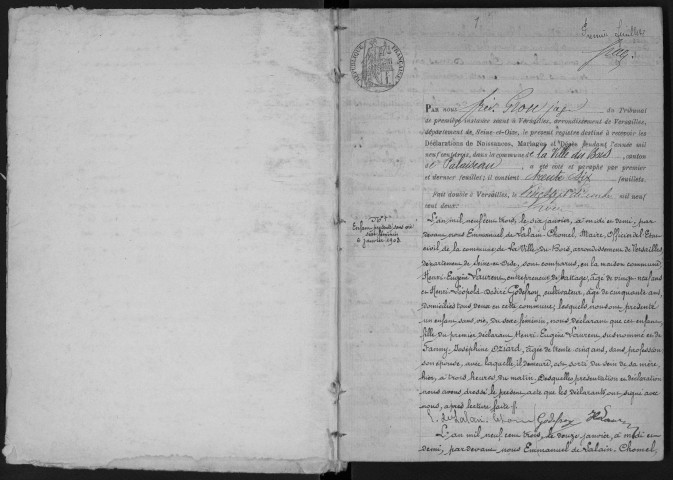 1
Premier feuillet
RÉPUBLIQUE FRANÇAISE
PAR nous du Tribunal
de première instance séant à Versailles, arrondissement de Versailles,
département de Seine-et-Oise, le présent registre destiné à recevoir les
Déclarations de Naissances, Mariages et Décès pendant l'année mil
neuf cent trois, dans la commune de la Ville du Bois, canton
de Palaiseau a été coté et paraphé par premier
et dernier feuillet; il contient trente six feuillets.
Fait double à Versailles, le mil neuf
cent deux.
N° 1
Enfant présenté sans vie
sexe féminin
6 janvier 1903
L'an mil neuf cent trois, le six janvier, à midi et demi, par
devant nous Emmanuel de Lalain-Chomel, Maire, Officier de l'Etat
civil de la commune de La Ville-du-Bois, arrondissement de Versailles,
département de Seine-et-Oise, sont comparus, en la maison commune
Henri-Eugène Laurent, entrepreneur de battage, âgé de vingt-neuf ans
et Henri Léopold Désiré Godefroy, cultivateur, âgé de cinquante ans,
domiciliés tous deux en cette commune; lesquels nous ont présenté
un enfant sans vie, du sexe féminin, nous déclarant que cet enfant,
fille du premier déclarant Henri-Eugène Laurent susnommé et de
Fanny Joséphine Oziard, âgée de trente cinq ans, sans profession
son épouse, avec laquelle il demeure, est sorti du sein de sa mère,
hier, à trois heures du matin. Desquelles présentation et déclaration
nous avons dressé le présent acte que les déclarants ont signé avec
nous, après lecture faite.
E. de Lalain-Chomel Godefroy H Laurent
L'an mil neuf cent trois, le douze janvier, à midi et
demi, par devant nous Emmanuel de Lalain-Chomel,